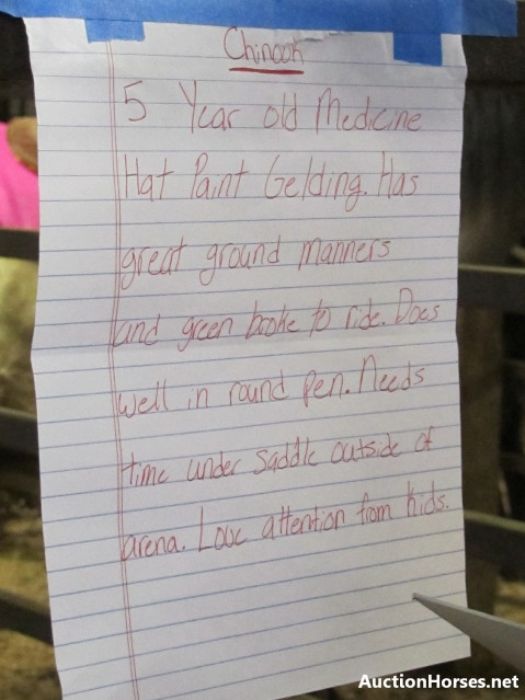 Chinook
5 Year old Medicine
Hat Paint Gelding. Has
great ground manners
and green broke to ride. Does
well in round pen. Needs
time under saddle outside of
arena. Love attention from kids.
AuctionHorses.net